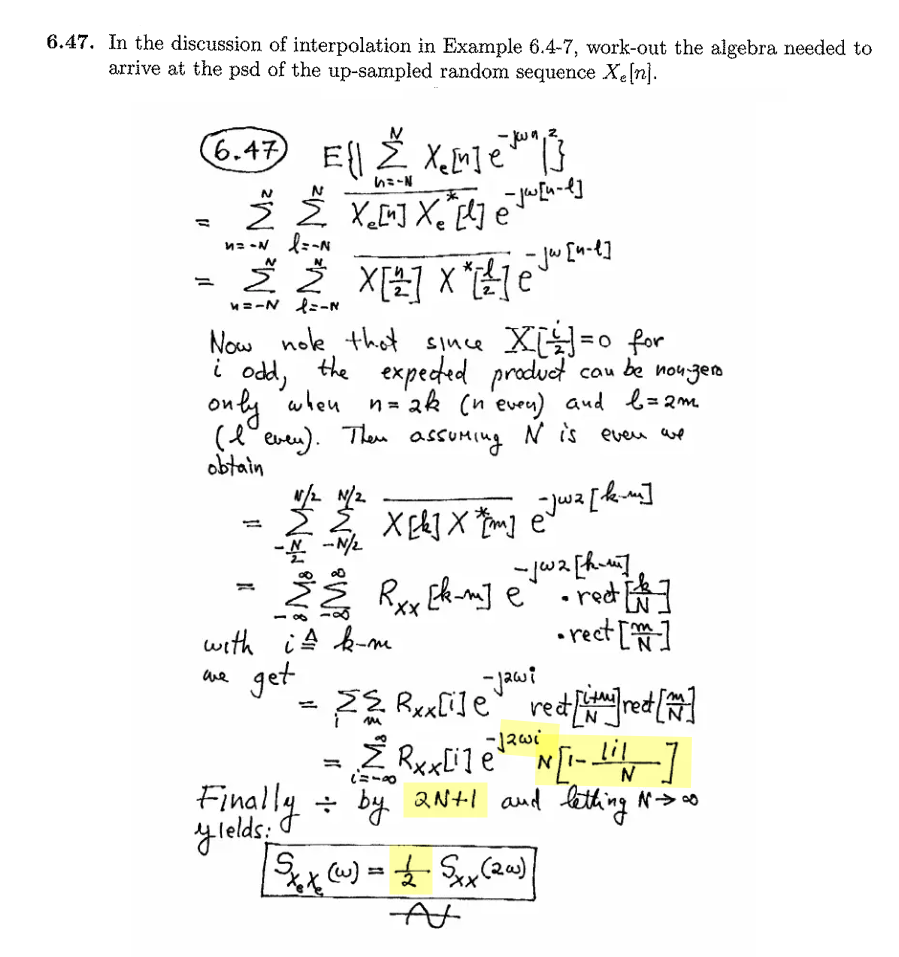 6.47. In the discussion of interpolation in Example 6.4-7, work-out the algebra needed to
arrive at the psd of the up-sampled random sequence Xₑ[n].
6.47 E{| Σ_{n=-N}^{N} Xₑ[n] e^{-jωn} |²}
= Σ_{n=-N}^{N} Σ_{l=-N}^{N} \overline{Xₑ[n] Xₑ*[l]} e^{-jω[n-l]}
= Σ_{n=-N}^{N} Σ_{l=-N}^{N} \overline{X[n/2] X*[l/2]} e^{-jω[n-l]}
Now note that since X[i/2]=0 for
i odd, the expected product can be non-zero
only when n=2k (n even) and l=2m
(l even). Then assuming N is even we
obtain
= Σ_{-N/2}^{N/2} Σ_{-N/2}^{N/2} \overline{X[k] X*[m]} e^{-jω2[k-m]}
= Σ_{-∞}^{∞} Σ_{-∞}^{∞} R_{XX}[k-m] e^{-jω2[k-m]} · rect[k/N]
with i ≜ k-m · rect[m/N]
we get
= Σ_i Σ_m R_{XX}[i] e^{-j2ωi} rect[(i+m)/N] rect[m/N]
= Σ_{i=-∞}^{∞} R_{XX}[i] e^{-j2ωi} N[1- |i|/N]
Finally ÷ by 2N+1 and letting N→∞
yields:
S_{XₑXₑ}(ω) = 1/2 S_{XX}(2ω)